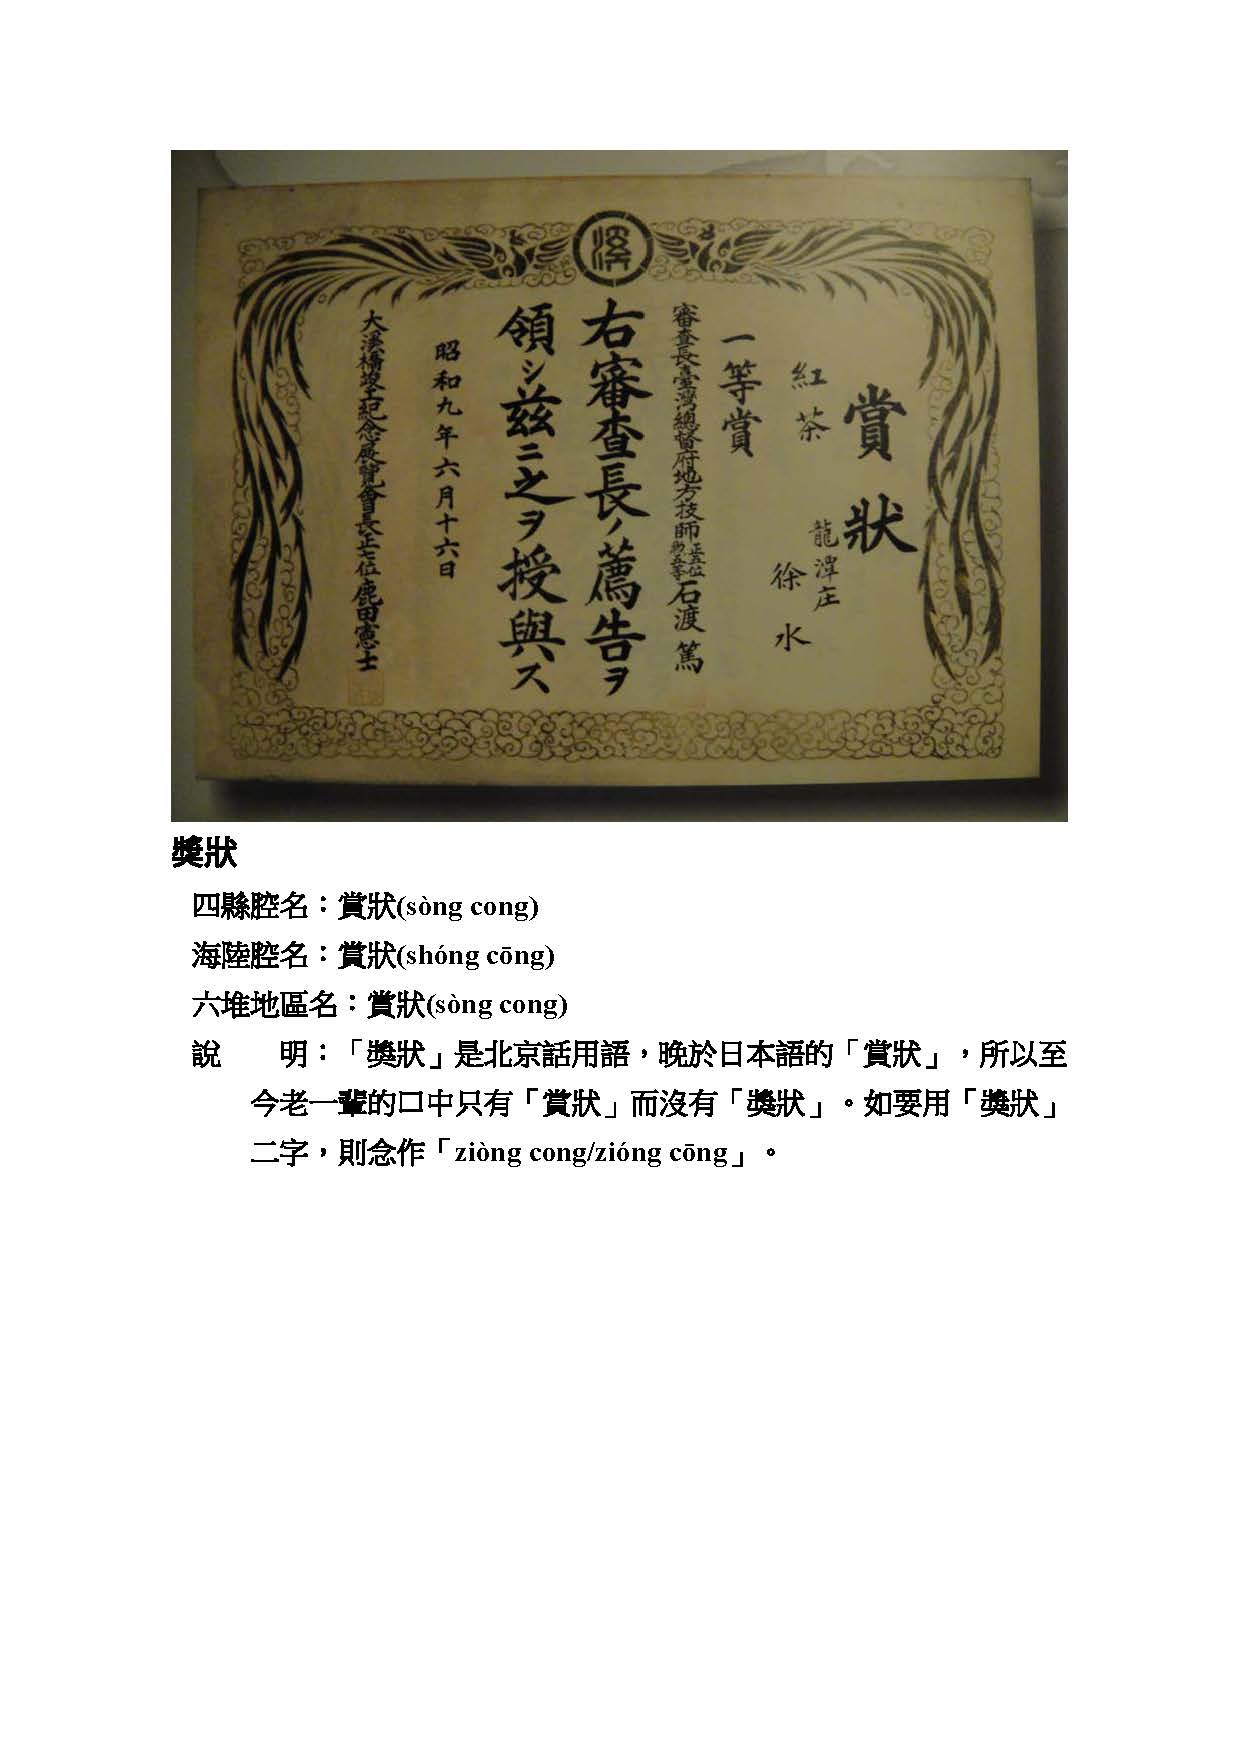 溪
賞狀
龍潭庄
紅茶 徐水
一等賞
審查長臺灣總督府地方技師正五位勲五等石渡篤
右審查長ノ薦告ヲ
領シ茲ニ之ヲ授與ス
昭和九年六月十六日
大溪橋竣工紀念展覽會長正七位鹿田憲士
獎狀
四縣腔名：賞狀(sòng cong)
海陸腔名：賞狀(shóng cōng)
六堆地區名：賞狀(sòng cong)
說　　明：「獎狀」是北京話用語，晚於日本語的「賞狀」，所以至
今老一輩的口中只有「賞狀」而沒有「獎狀」。如要用「獎狀」
二字，則念作「ziòng cong/zióng cōng」。